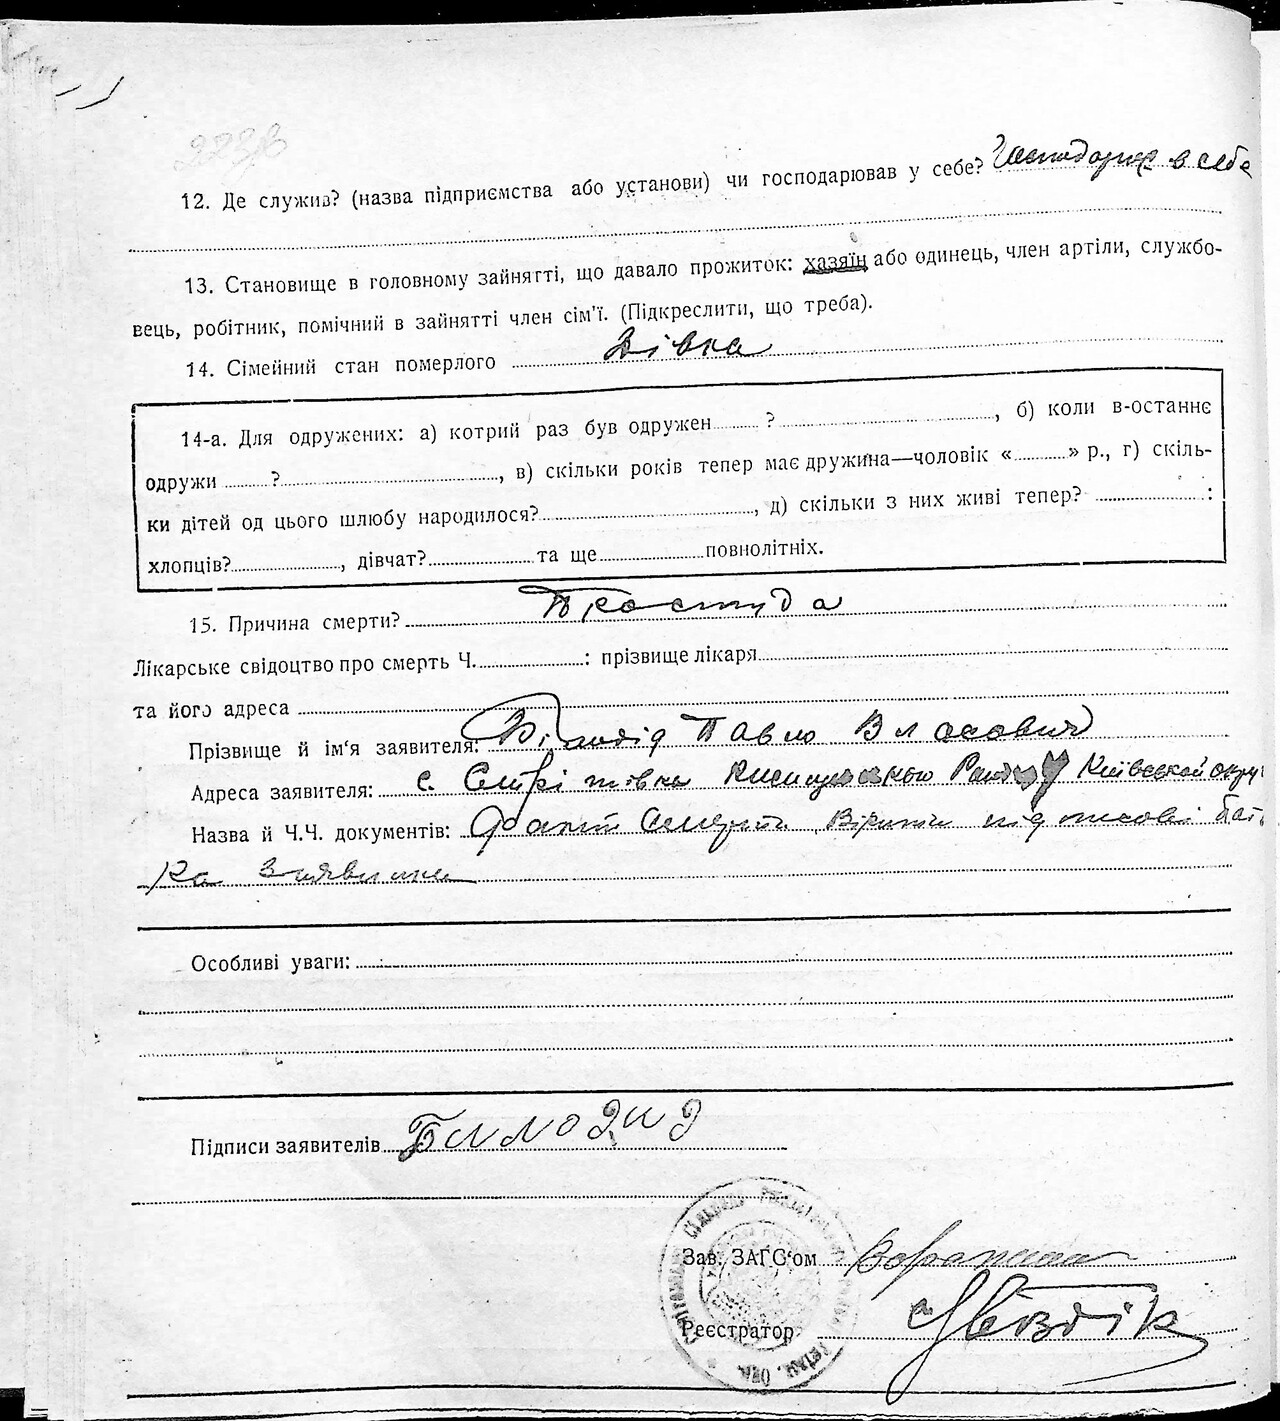 12. Де служив? (назва підприємства або установи) чи господарював у себе? Господарюв в себе
13. Становище в головному зайнятті, що давало прожиток: хазяїн або одинець, член артіли, службо-
вець, робітник, помічний в зайнятті член сім'ї. (Підкреслити, що треба).
14. Сімейний стан померлого Дівка
14-а. Для одружених: а) котрий раз був одружен ? , б) коли в-останнє
одружи ? , в) скільки років тепер має дружина—чоловік « » р., г) скіль-
ки дітей од цього шлюбу народилося? , д) скільки з них живі тепер? :
хлопців? , дівчат? та ще повнолітніх.
15. Причина смерти? Простуда
Лікарське свідоцтво про смерть Ч. : прізвище лікаря
та його адреса
Прізвище й ім'я заявителя: Білодід Павло Власович
Адреса заявителя: с. Київської окру
Назва й Ч.Ч. документів: Факт Смерти Вірити підписові бать
ка
Особливі уваги:
Підписи заявителів Билодид
Зав. ЗАГС'ом
Реєстратор Гвоздік